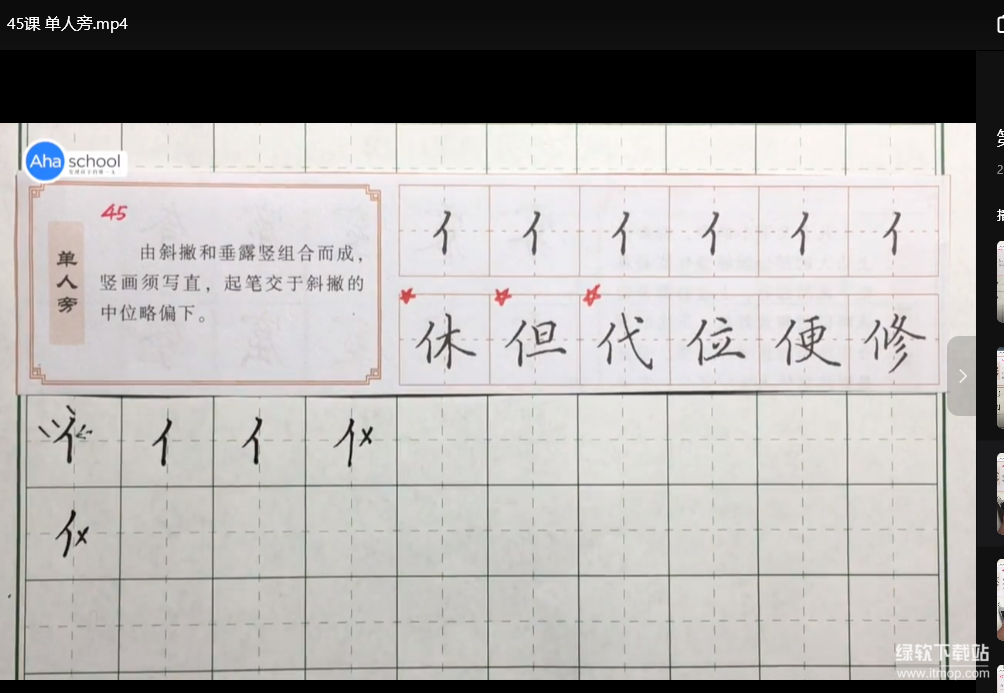 45课 单人旁.mp4
Aha school
45
单人旁
由斜撇和垂露竖组合而成，
竖画须写直，起笔交于斜撇的
中位略偏下。
亻 亻 亻 亻 亻 亻
休 但 代 位 便 修
亻 亻 亻 亻x
亻x
绿软下载站
www.itmop.com